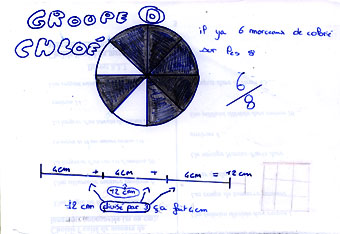 GROUPE D
CHLOÉ
il ya 6 morceaux de colorié
sur les 8
6/8
4cm + 4cm + 4cm = 12cm
12 cm
12 cm divisé par 3 ça fait 4cm